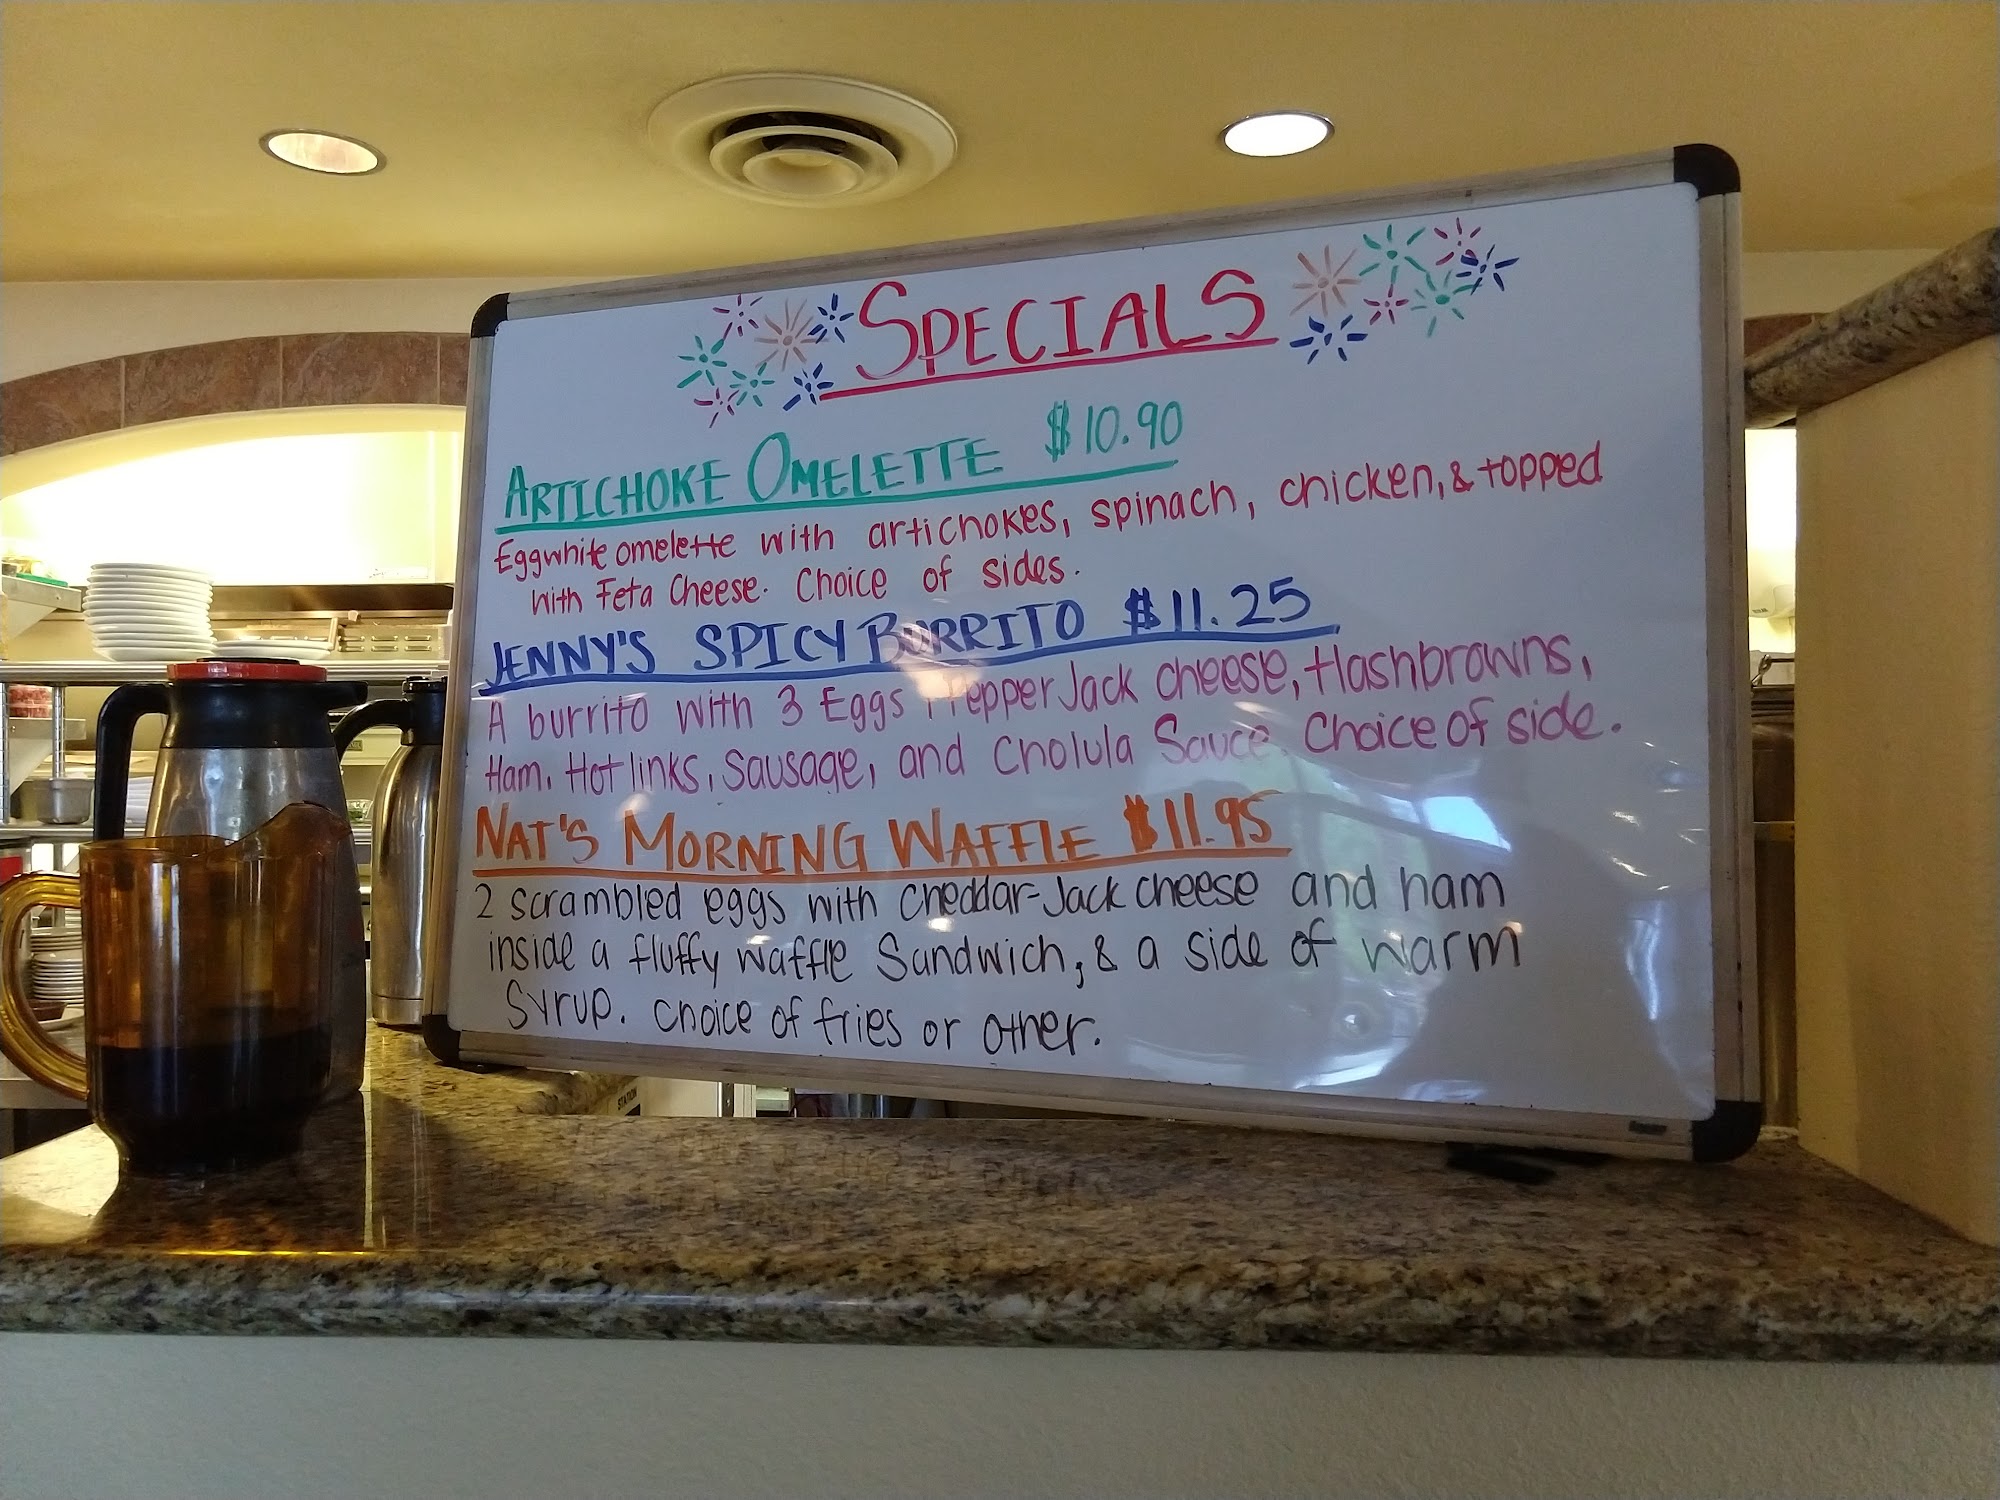 SPECIALS
ARTICHOKE OMELETTE $10.90
Eggwhite omelette with artichokes, spinach, chicken, & topped
with Feta Cheese. Choice of sides.
JENNY'S SPICY BURRITO $11.25
A burrito with 3 Eggs, PepperJack cheese, Hashbrowns,
Ham, Hot links, Sausage, and Cholula Sauce. Choice of side.
NAT'S MORNING WAFFLE $11.95
2 scrambled eggs with cheddar-Jack cheese and ham
inside a fluffy waffle Sandwich, & a side of warm
Syrup. Choice of fries or other.
STATION